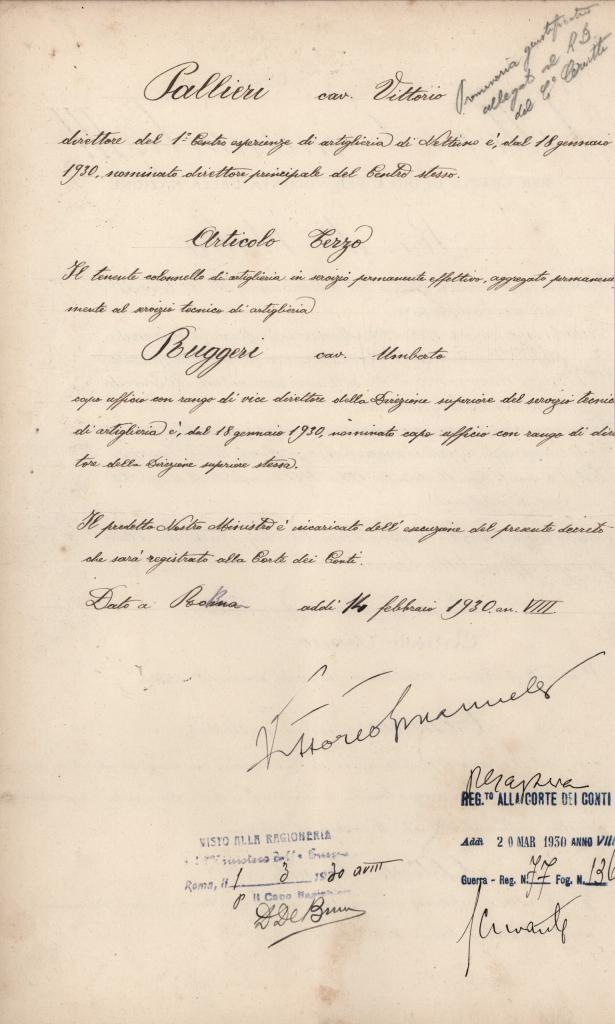 allegato al R D
del
Pallieri cav. Vittorio
direttore del 1º Centro esperienze di artiglieria di Nettuno è, dal 18 gennaio
1930, nominato direttore principale del Centro stesso.
Articolo Terzo
Il tenente colonnello di artiglieria in servizio permanente effettivo, aggregato permanen
mente al servizio tecnico di artiglieria
Ruggeri cav. Umberto
capo ufficio con rango di vice direttore della Direzione superiore del servizio tecnic
di artiglieria è, dal 18 gennaio 1930, nominato capo ufficio con rango di dire
tore della Direzione superiore stessa.
Il predetto Nostro Ministro è incaricato dell'esecuzione del presente decreto
che sarà registrato alla Corte dei Conti.
Dato a Roma addì 14 febbraio 1930. an. VIII
Vittorio Emanuele
REG.TO ALLA CORTE DEI CONTI
Addì 20 MAR 1930 ANNO VIII
Guerra - Reg. N. 77 Fog. N. 136
VISTO ALLA RAGIONERIA
Roma, il 1 3 1930 XVIII
p Il Capo Ragioniere